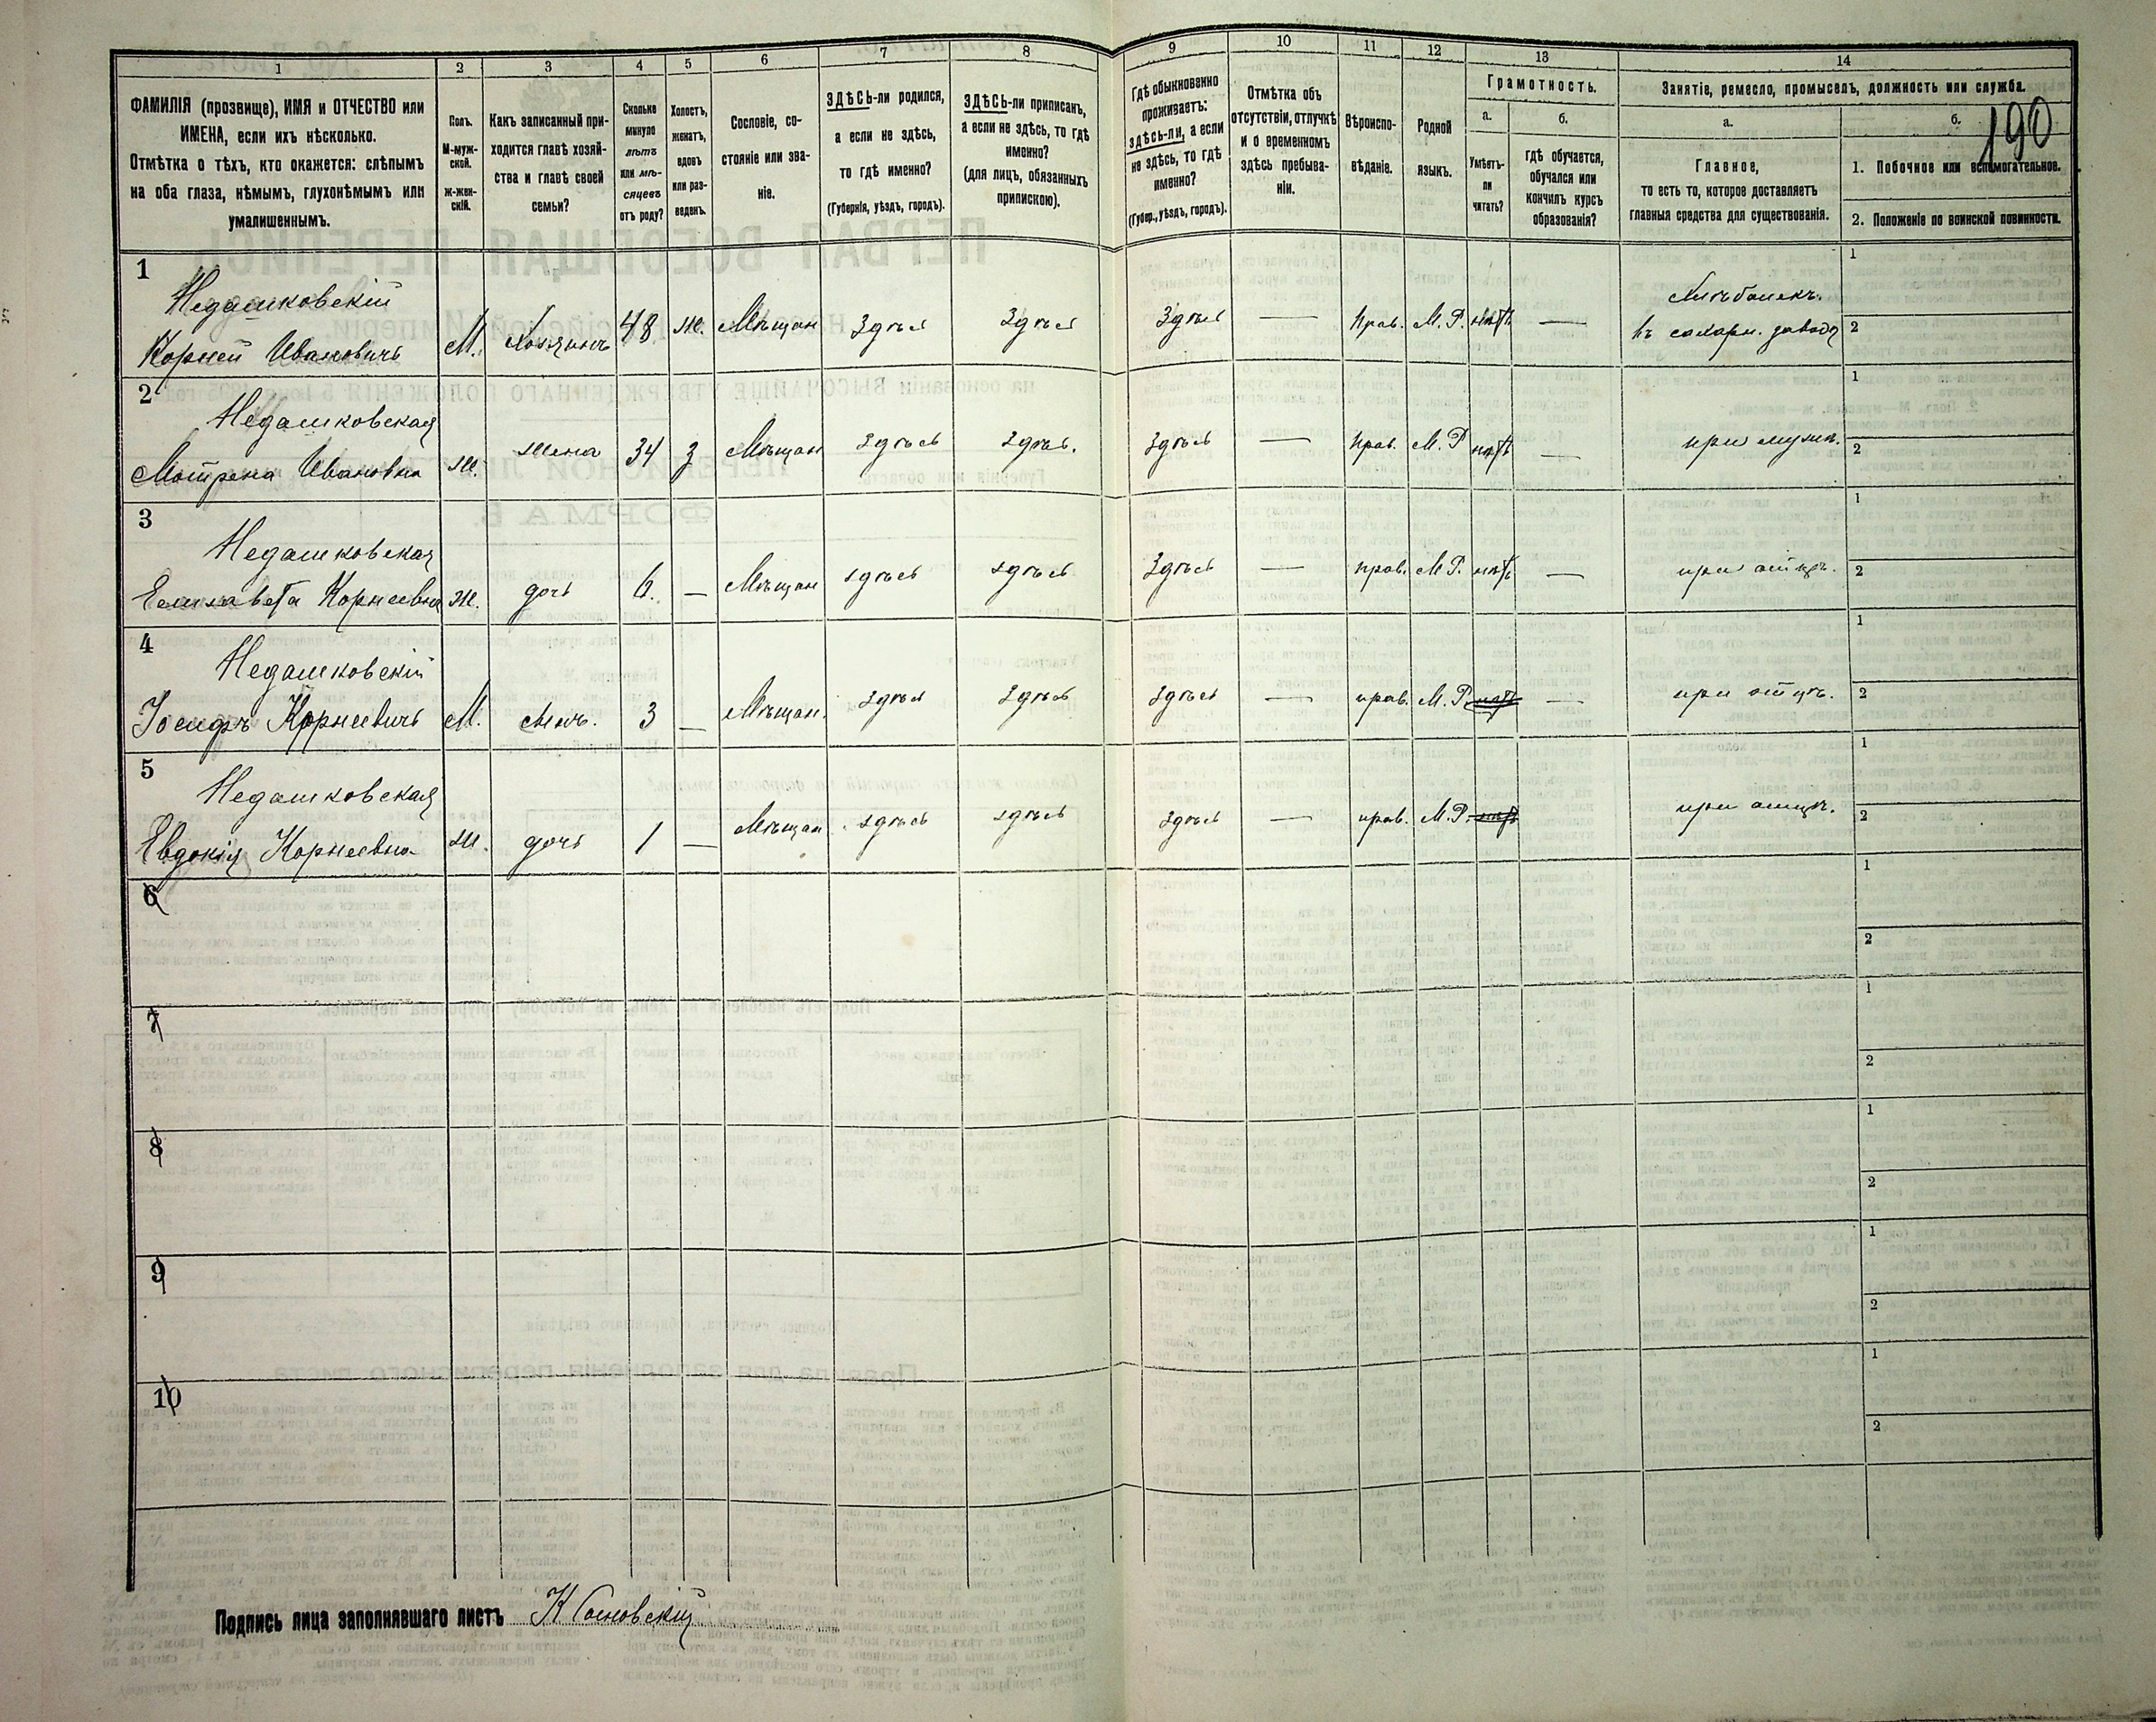 190
1 2 3 4 5 6 7 8 9 10 11 12 13 14
ФАМИЛІЯ (прозвище), ИМЯ и ОТЧЕСТВО или
ИМЕНА, если ихъ нѣсколько.
Отмѣтка о тѣхъ, кто окажется: слѣпымъ
на оба глаза, нѣмымъ, глухонѣмымъ или
умалишеннымъ.
Полъ.
М-муж-
ской.
ж-жен-
скій.
Какъ записанный при-
ходится главѣ хозяй-
ства и главѣ своей
семьи?
Сколько
минуло
лѣтъ
или мѣ-
сяцевъ
отъ роду?
Холостъ,
женатъ,
вдовъ
или раз-
веденъ.
Сословіе, со-
стояніе или зва-
ніе.
ЗДѢСЬ-ли родился,
а если не здѣсь,
то гдѣ именно?
(Губернія, уѣздъ, городъ).
ЗДѢСЬ-ли приписанъ,
а если не здѣсь, то гдѣ
именно?
(для лицъ, обязанныхъ
припискою).
Гдѣ обыкновенно
проживаетъ:
ЗДѢСЬ-ли, а если
не здѣсь, то гдѣ
именно?
(Губер., уѣздъ, городъ).
Отмѣтка объ
отсутствіи, отлучкѣ
и о временномъ
здѣсь пребыва-
ніи.
Вѣроиспо-
вѣданіе.
Родной
языкъ.
Грамотность.
а.
Умѣетъ-
ли
читать?
б.
гдѣ обучается,
обучался или
кончилъ курсъ
образованія?
Занятіе, ремесло, промыселъ, должность или служба.
а.
Главное,
то есть то, которое доставляетъ
главныя средства для существованія.
б.
1. Побочное или вспомогательное.
2. Положеніе по воинской повинности.
1
Недашковскій
Корней Ивановичъ М. Хозяинъ 48 ж. Мѣщан Здѣсь Здѣсь Здѣсь — Прав. М. Р. нѣтъ —
въ сахарн. заводѣ
1
2
2
Недашковская
Мотрена Ивановна ж. жена 34 з Мѣщан здѣсь здѣсь. здѣсь — Прав. М. Р нѣтъ — при мужѣ.
1
2
3
Недашковская
Елизавета Корнеевна ж. дочь 6. — Мѣщан здѣсь здѣсь здѣсь — прав. М Р. нѣтъ — при отцѣ.
1
2
4
Недашковскій
Іосифъ Корнеевичъ М. сынъ. 3 — Мѣщан. здѣсь здѣсь здѣсь — прав. М. Р. нѣтъ — при отцѣ.
1
2
5
Недашковская
Евдокія Корнеевна ж. дочь 1 — Мѣщан здѣсь здѣсь здѣсь — прав. М. Р. нѣтъ при отцѣ.
1
2
6
1
2
7
1
2
8
1
2
9
1
2
10
1
2
Подпись лица заполнявшаго листъ К Сосновскій